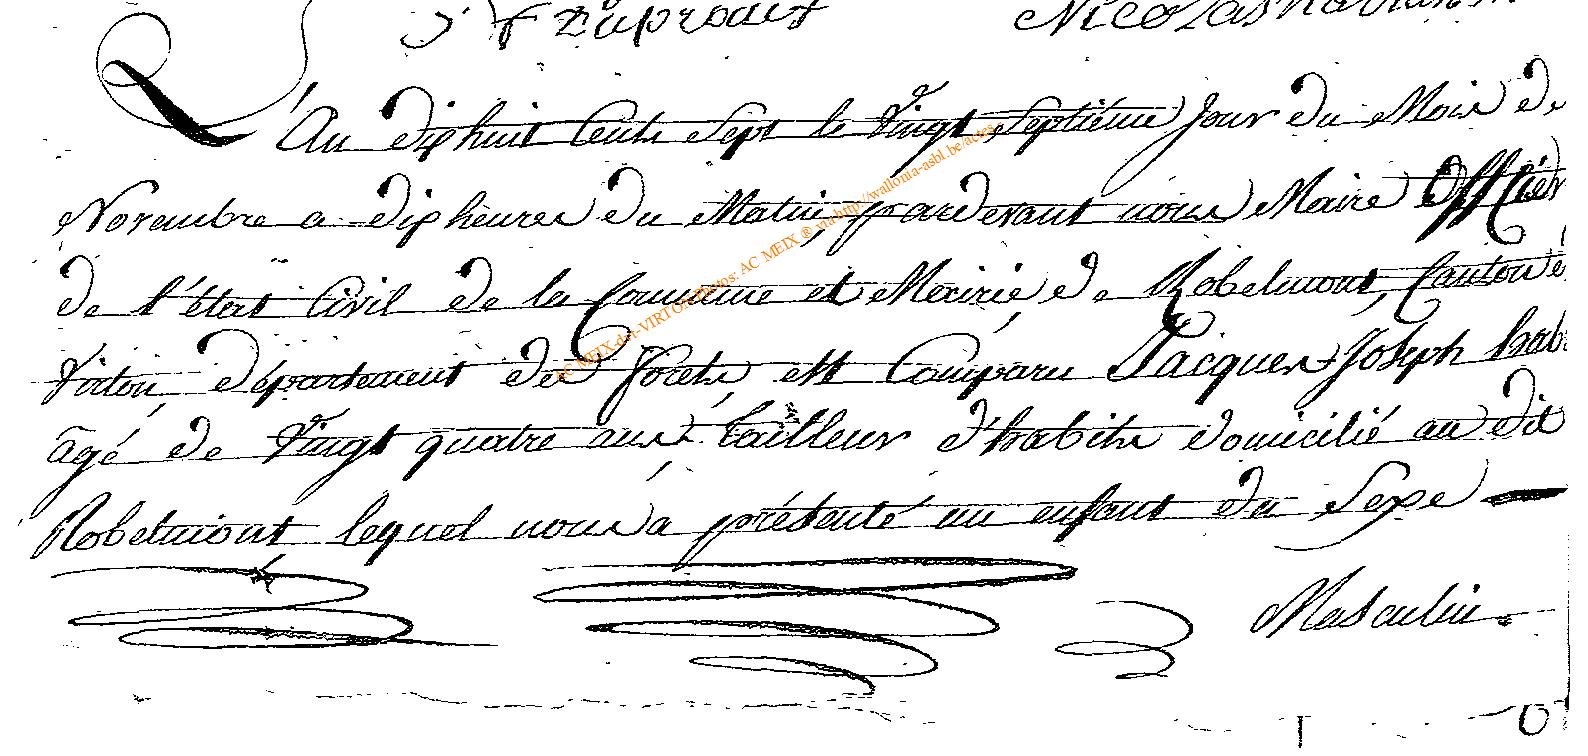 L'An dixhuit Cents Sept le Vingt Septiéme Jour du Mois de
Novembre a dix heures du Matin, pardevant nous Maire Officier
de l'état Civil de la Commune et Mairie de Robelmont, Canton
Virton, département des Forets, est Comparu Jacques Joseph
âgé de Vingt quatre ans, tailleur d'habits domicilié au dit
Robelmont lequel nous a présenté un enfant du Sexe
Masculin.
AC MEIX-dvt-VIRTON Photos: AC MEIX ® via http://wallonia-asbl.be/actes